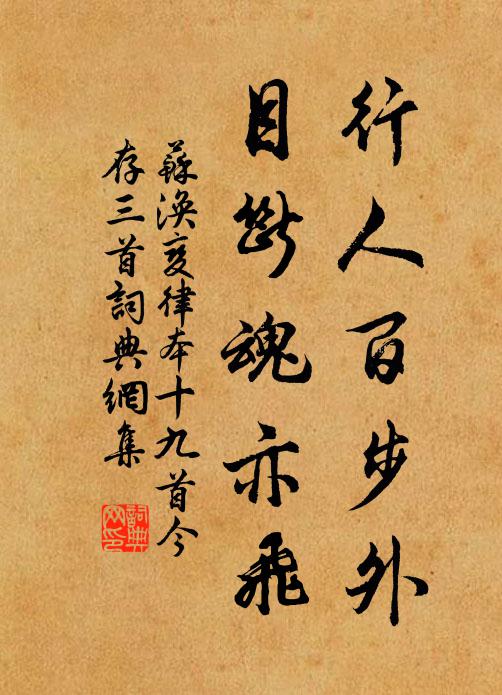 行人百步外
目斷魂亦飛
蘇渙變律本十九首今
存三首詞典網集
詞典
网印